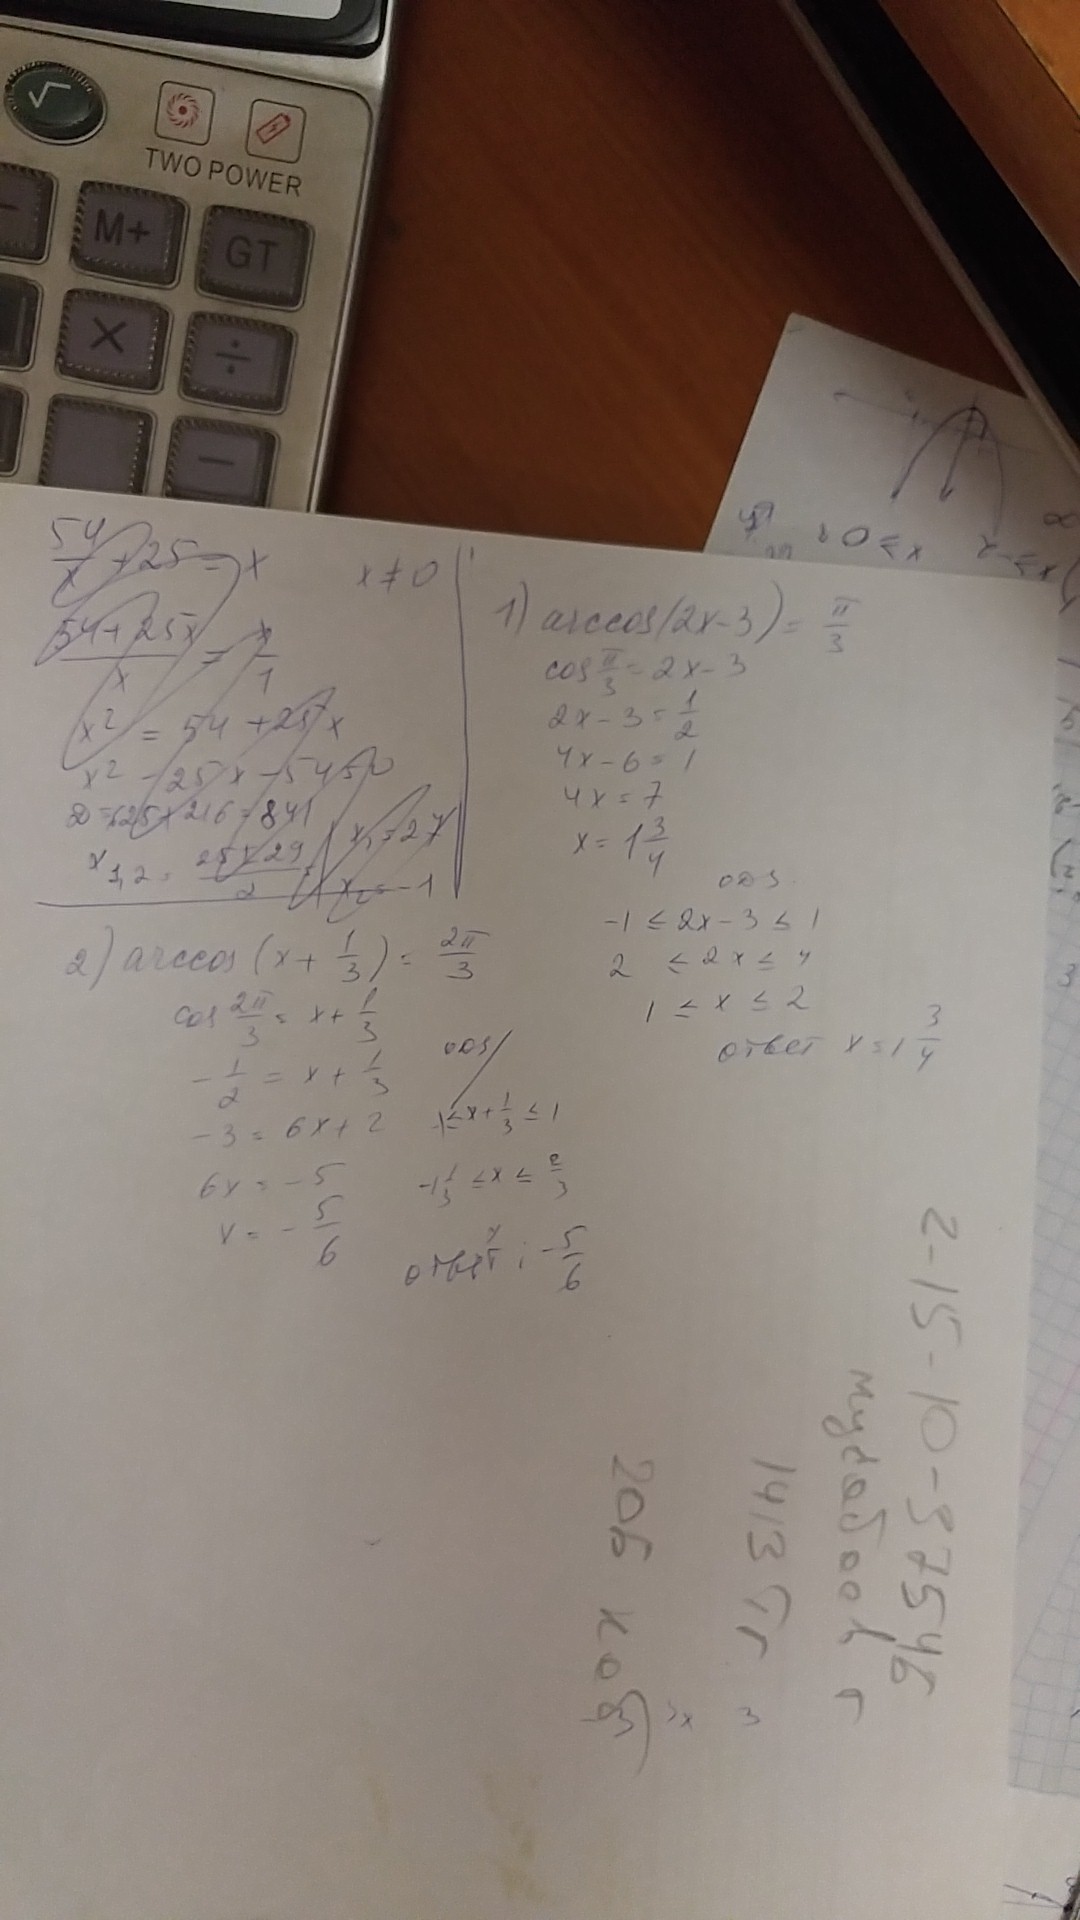 √
TWO POWER
M+
GT
×
÷
−
54/x + 25 = x   x ≠ 0
(54 + 25x)/x = x/1
x² = 54 + 25x
x² - 25x - 54 = 0
D = 625 + 216 = 841
x₁,₂ = (25 ± 29)/2 = x₁ = 27
x₂ = -1
1) arccos(2x-3) = π/3
cos π/3 = 2x-3
2x-3 = 1/2
4x-6 = 1
4x = 7
x = 1 3/4
ODS
-1 ≤ 2x-3 ≤ 1
2 ≤ 2x ≤ 4
1 ≤ x ≤ 2
ответ x = 1 3/4
2) arccos(x + 1/3) = 2π/3
cos 2π/3 = x + 1/3
-1/2 = x + 1/3
-3 = 6x + 2
6x = -5
x = -5/6
ODS
-1 ≤ x + 1/3 ≤ 1
-1 1/3 ≤ x ≤ 2/3
ответ: -5/6
1413
206 каб